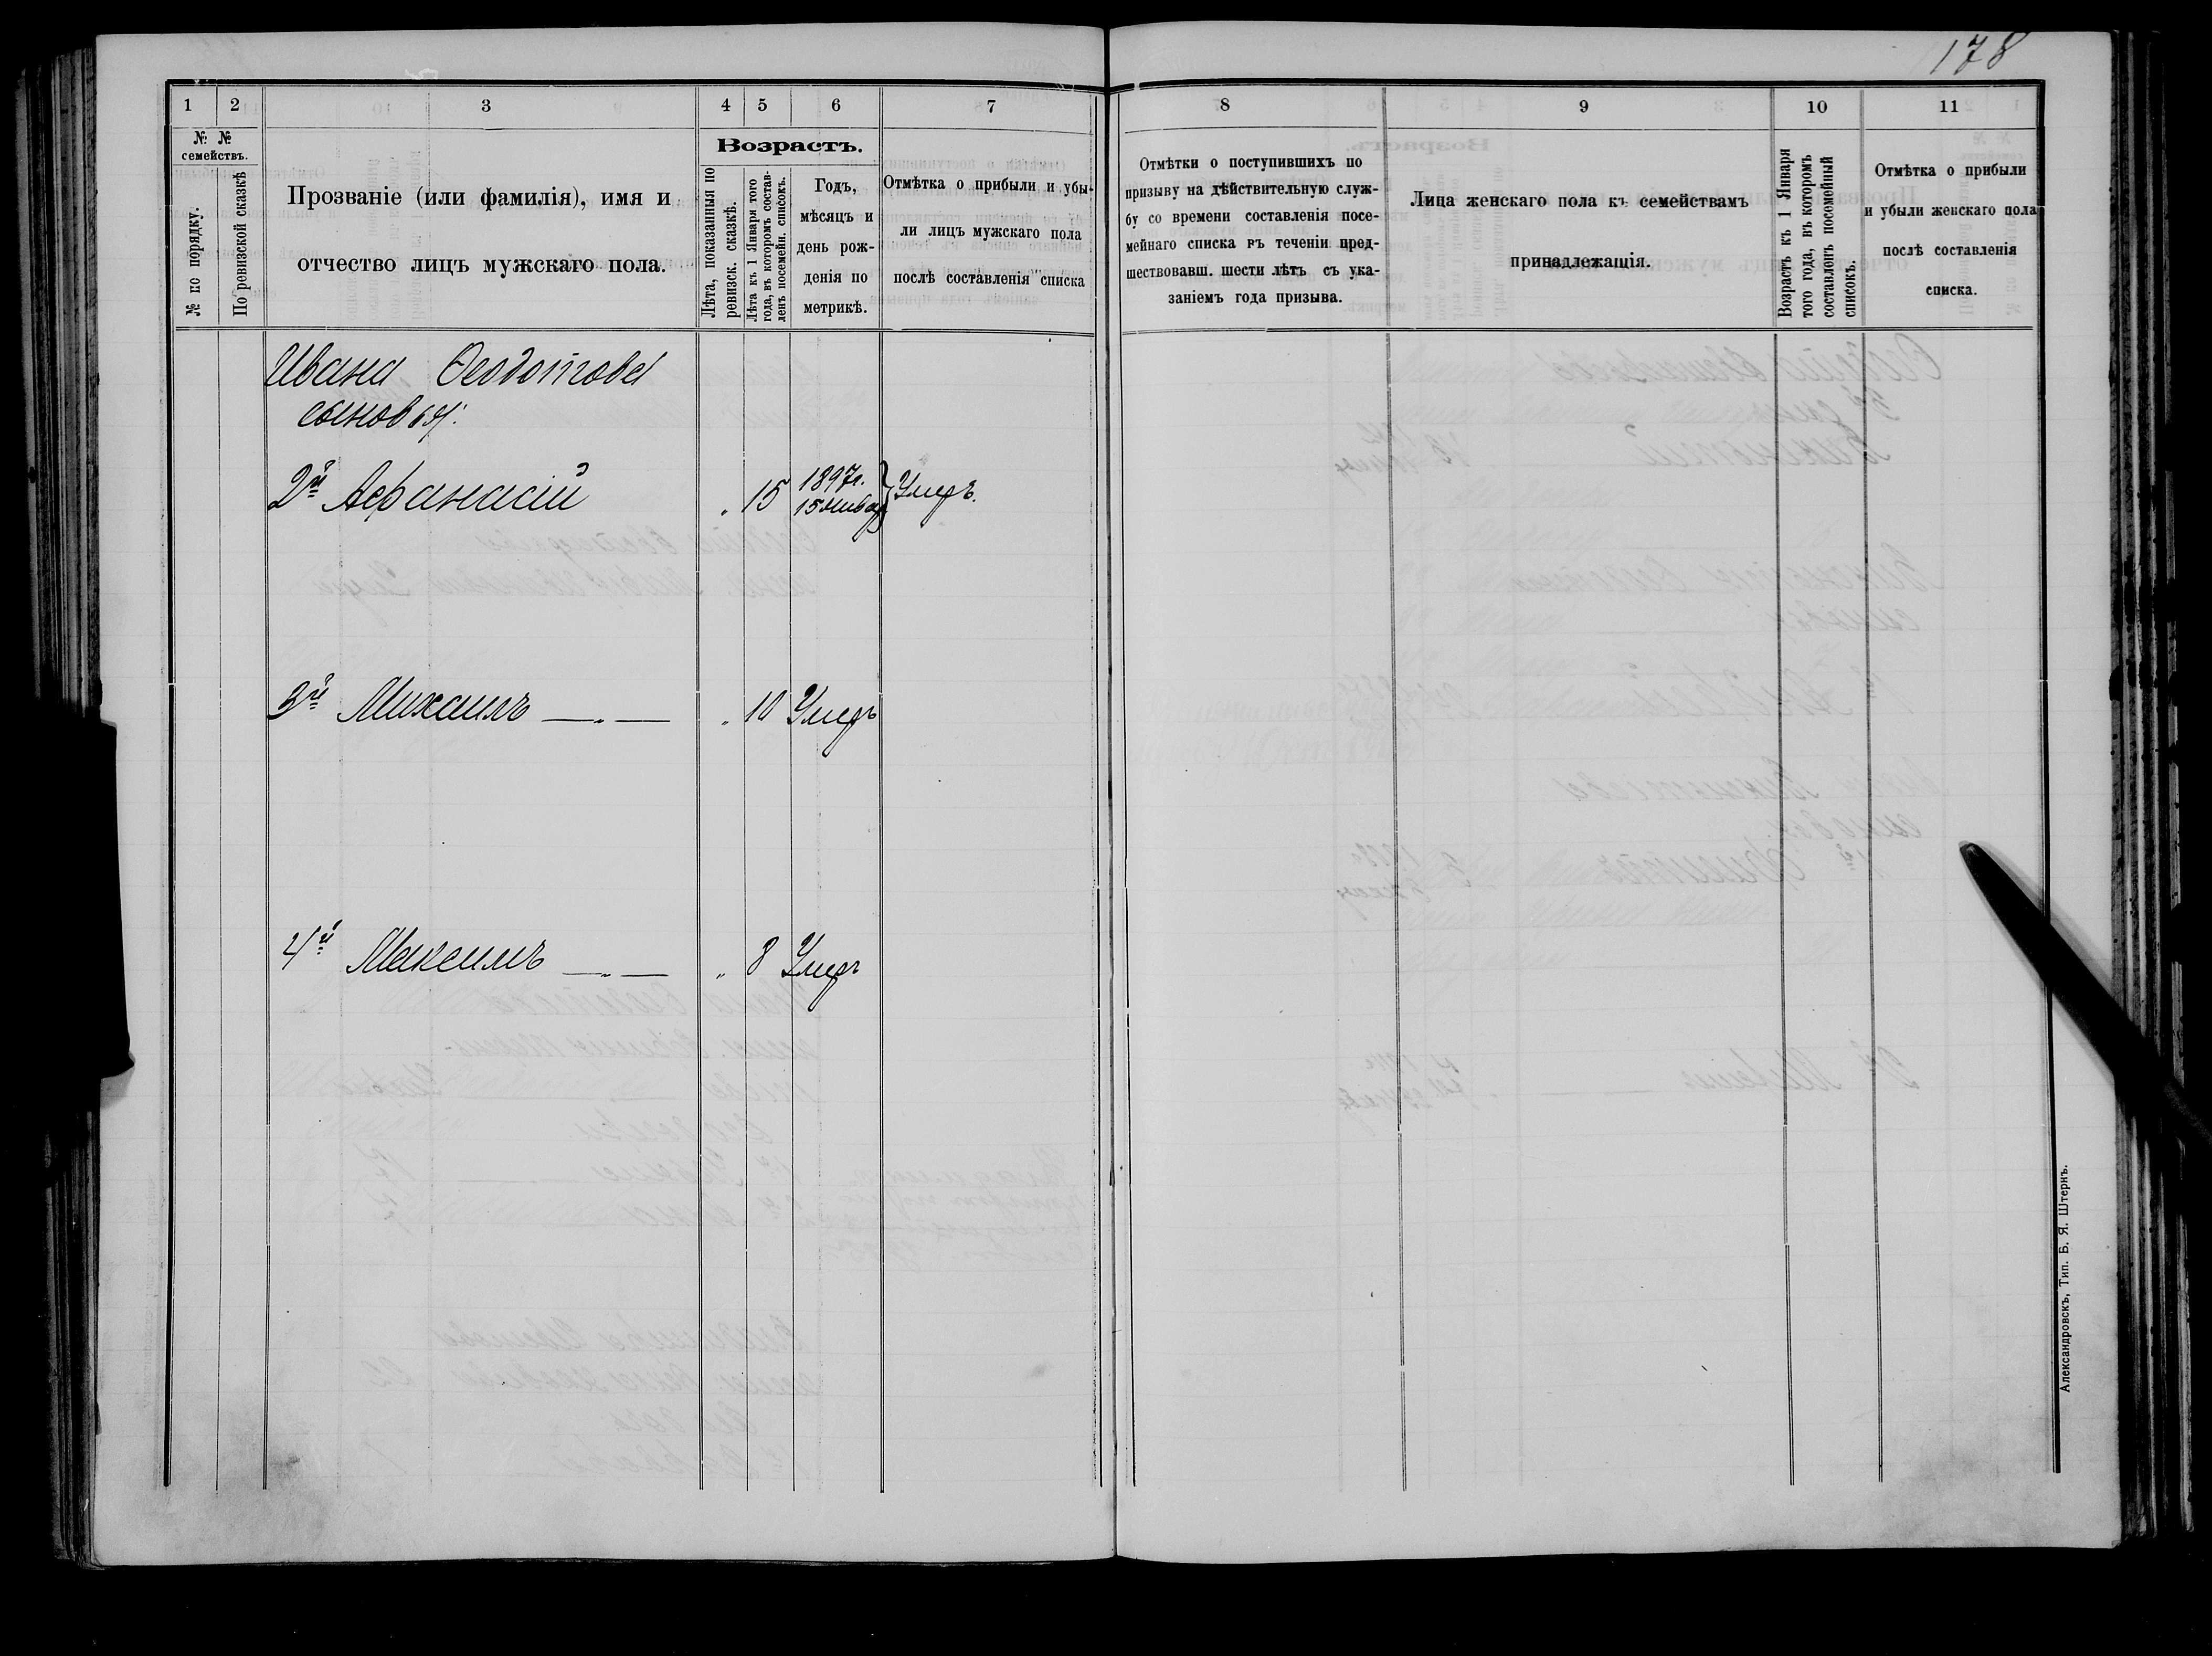 178
1 2 3 4 5 6 7
№ № семействъ.
№ по порядку.
По ревизской сказкѣ
Прозваніе (или фамилія), имя и
отчество лицъ мужскаго пола.
Возрастъ.
Лѣта, показанныя по
ревизск. сказкѣ.
Лѣта къ 1 Января того
года, въ которомъ состав-
ленъ посемейн. списокъ.
Годъ,
мѣсяцъ и
день рож-
денія по
метрикѣ.
Отмѣтка о прибыли и убы-
ли лицъ мужскаго пола
послѣ составленія списка
Ивана Ѳеодотова
сыновья:
2й Афанасій " 15 1897г. Умеръ.
15 янва
3й Михаилъ — " — " 10 Умеръ
4й Максимъ — " — " 8 Умеръ
8 9 10 11
Отмѣтки о поступившихъ по
призыву на дѣйствительную служ-
бу со времени составленія посе-
мейнаго списка въ теченіи пред-
шествовавш. шести лѣтъ съ ука-
заніемъ года призыва.
Лица женскаго пола къ семействамъ
принадлежащія.
Возрастъ къ 1 Января
того года, въ которомъ
составленъ посемейный
списокъ.
Отмѣтка о прибыли
и убыли женскаго пола
послѣ составленія
списка.
Александровскъ, Тип. Б. Я. Штернъ.